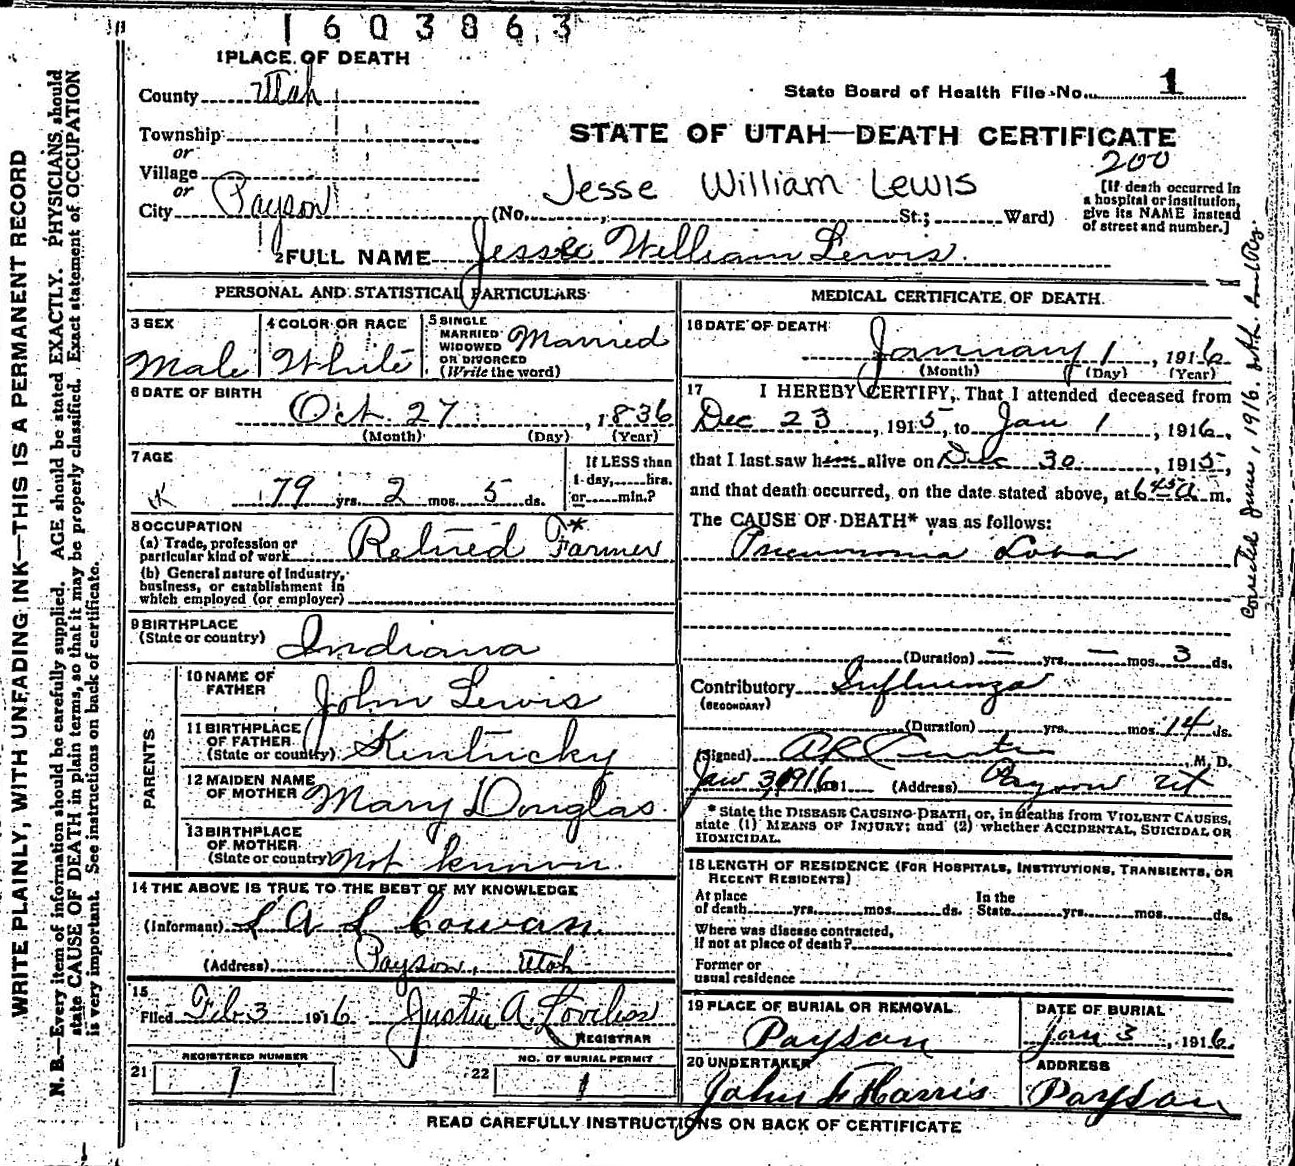 1603863
1 PLACE OF DEATH
County Utah
State Board of Health File No. 1
Township
or
Village
or
City Payson
STATE OF UTAH—DEATH CERTIFICATE
200
Jesse William Lewis
(No. , St.; Ward)
[If death occurred in
a hospital or institution,
give its NAME instead
of street and number.]
2 FULL NAME Jesse William Lewis.
PERSONAL AND STATISTICAL PARTICULARS
3 SEX
Male
4 COLOR OR RACE
White
5 SINGLE
MARRIED
WIDOWED
OR DIVORCED
(Write the word)
Married
6 DATE OF BIRTH
Oct. 27, 1836
(Month) (Day) (Year)
7 AGE
79 yrs. 2 mos. 5 ds.
If LESS than
1 day, hrs.
or min.?
8 OCCUPATION
(a) Trade, profession or
particular kind of work Retired Farmer
(b) General nature of Industry,
business, or establishment in
which employed (or employer)
9 BIRTHPLACE
(State or country) Indiana
PARENTS
10 NAME OF
FATHER John Lewis
11 BIRTHPLACE
OF FATHER
(State or country) Kentucky
12 MAIDEN NAME
OF MOTHER Mary Douglas.
13 BIRTHPLACE
OF MOTHER
(State or country) Not known.
14 THE ABOVE IS TRUE TO THE BEST OF MY KNOWLEDGE
(Informant) L A L Cowan.
(Address) Payson, Utah
15
Filed Feb 3 1916 Justin A. Loveless
REGISTRAR
REGISTERED NUMBER
21 1
NO. OF BURIAL PERMIT
22 1
MEDICAL CERTIFICATE OF DEATH
16 DATE OF DEATH
January 1, 1916
(Month) (Day) (Year)
17 I HEREBY CERTIFY, That I attended deceased from
Dec 23, 1915, to Jan 1, 1916,
that I last saw him alive on Dec 30, 1915,
and that death occurred, on the date stated above, at 6 45 a m.
The CAUSE OF DEATH* was as follows:
Pneumonia Lobar
(Duration) — yrs. — mos. 3 ds.
Contributory Influenza
(SECONDARY)
(Duration) yrs. mos. 14 ds.
(Signed) , M. D.
Jan 3, 1916 191 (Address) Payson Ut
* State the DISEASE CAUSING DEATH, or, in deaths from VIOLENT CAUSES,
state (1) MEANS OF INJURY; and (2) whether ACCIDENTAL, SUICIDAL OR
HOMICIDAL.
18 LENGTH OF RESIDENCE (FOR HOSPITALS, INSTITUTIONS, TRANSIENTS, OR
RECENT RESIDENTS)
At place
of death yrs. mos. ds.
In the
State yrs. mos. ds.
Where was disease contracted,
if not at place of death?
Former or
usual residence
19 PLACE OF BURIAL OR REMOVAL
Payson
DATE OF BURIAL
Jan 3, 1916.
20 UNDERTAKER
John F Harris
ADDRESS
Payson
READ CAREFULLY INSTRUCTIONS ON BACK OF CERTIFICATE
WRITE PLAINLY, WITH UNFADING INK—THIS IS A PERMANENT RECORD
N. B.—Every item of information should be carefully supplied. AGE should be stated EXACTLY. PHYSICIANS should
state CAUSE OF DEATH in plain terms, so that it may be properly classified. Exact statement of OCCUPATION
is very important. See instructions on back of certificate.
Corrected June, 1916.